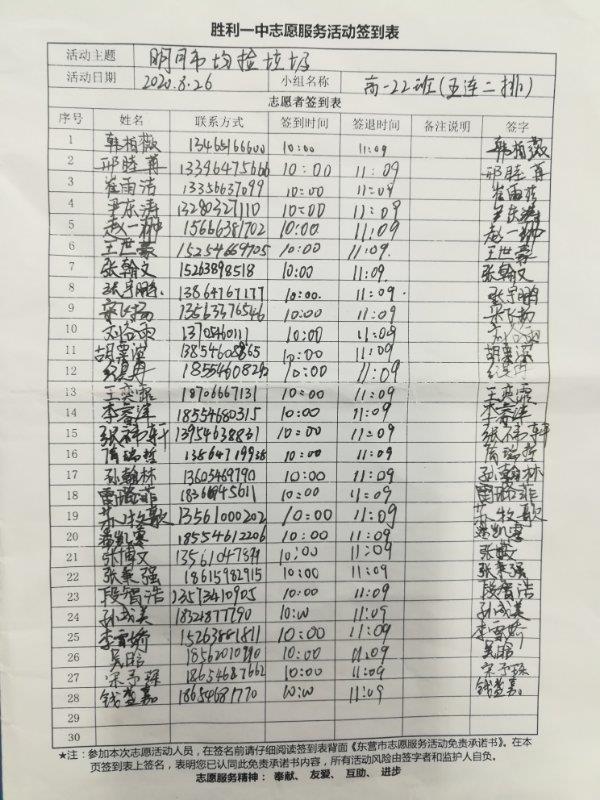 胜利一中志愿服务活动签到表
活动主题 明月湖 捡垃圾
活动日期 2020.8.26 小组名称 高一22班(五连二排)
志愿者签到表
序号 姓名 联系方式 签到时间 签退时间 备注说明 签字
1 韩柏薇 13465766600 10:00 11:09 韩柏薇
2 邢睦 13396475666 10:00 11:09 邢睦
3 崔雨洁 13356637099 10:00 11:09 崔雨洁
4 尹东涛 13280327110 10:00 11:09 尹东涛
5 赵一 15666381702 10:00 11:09 赵一
6 王世豪 15254669705 10:00 11:09. 王世豪
7 张翰文 15263898518 10:00 11:09. 张翰文
8 13864767177 10:00. 11:09.
9 13563376546 10:00 11:09
10 10:00 11:09
11 胡 10:00 11:09 胡
12 10:00 11:09
13 王奕霏 18706667131 10:00 11:09 王奕霏
14 李睿洋 18554680315 10:00 11:09 李睿洋
15 张 13954638831 10:00 11:09 张
16 隋瑞哲 13864719938 10:00 11:09 隋瑞哲
17 孙翰林 13605469790 10:00 11:09 孙翰林
18 雷璐菲 10:00 11:09 雷璐菲
19 苏牧歌 13561000202 10:00 11:09 苏牧歌
20 凯 18554612206 10:00 11:09 凯
21 张博文 10:00 11:09 张
22 张秉强 18615982915 10:00 11:09 张秉强
23 段智浩 13573410905 10:00 11:09 段智浩
24 孙成美 18524877790 10:00 11:09 孙成美
25 李雪娇 15263881811 10:00 11:09 李雪娇
26 吴晗 18562010790 10:00 11:09 吴晗
27 宋予瑶 18654687662 10:00 11:09 宋予瑶
28 钱 10:00 11:09 钱
29
30
★注：参加本次志愿活动人员，在签名前请仔细阅读签到表背面《东营市志愿服务活动免责承诺书》。在本
页签到表上签名，表明您已认同此免责承诺书内容，所有活动风险由签字者和监护人自负。
志愿服务精神：奉献、友爱、互助、进步